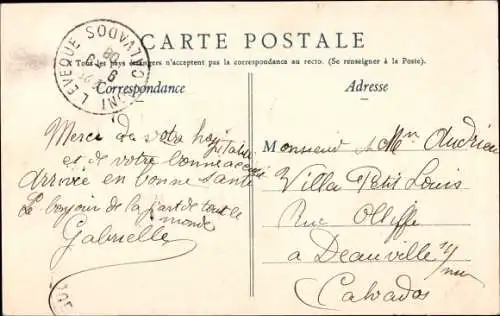 CARTE POSTALE
Tous les pays étrangers n'acceptent pas la correspondance au recto. (Se renseigner à la Poste)
Correspondance
Adresse
PONT L'EVEQUE CALVADOS
Merci de votre hospitalité
et de votre bonne accueil
arrivée en bonne santé
Le bonjour de la part de tout le
monde
Gabrielle
Monsieur & Mme Andrieu
Villa Petit Louis
Rue Olliffe
a Deauville s/mer
Calvados